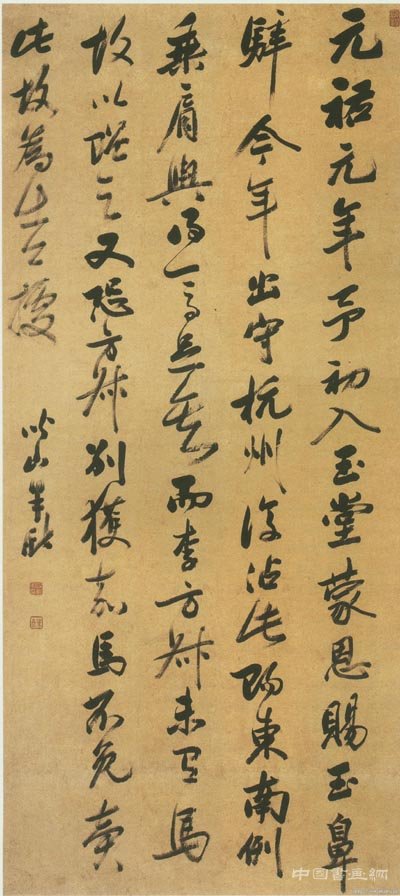 元祐元年予初入玉堂蒙恩賜玉鼻
騂今年出守杭州復沾此賜東南例
乘肩輿得一馬足矣而李方叔未有馬
故以贈之又恐方叔別獲嘉馬不免賣
此故為出公據
中國書畫網